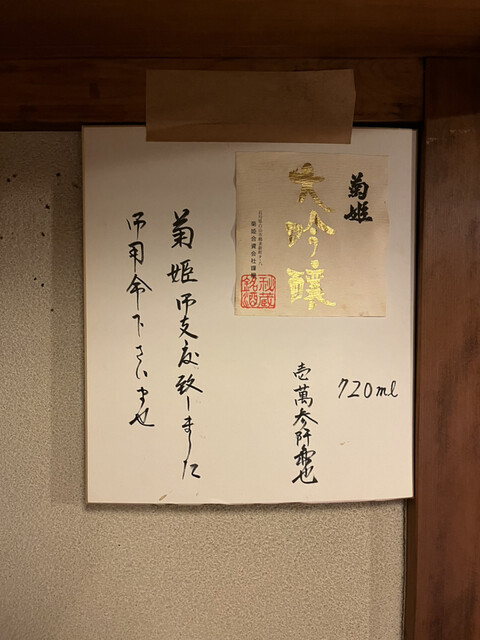 菊姫
大吟醸
菊姫合資会社謹醸
秘蔵
銘酒
720ml
壱萬参阡也
菊姫御支度致しました
御用命下さいませ